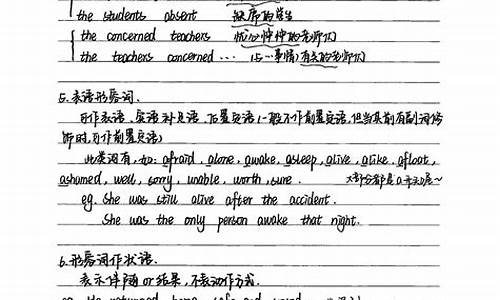 the students absent 缺席的学生
the concerned teachers 忧心忡忡的老师们
the teachers concerned … (与…事情)有关的老师们
5. 表语形容词.
可作表语、宾语补足语、后置定语(一般不作前置定语,但当其前有副词修
饰时,可作前置定语)
此类词有,如: afraid, alone, awake, asleep, alive, alike, afloat,
ashamed, well, sorry, unable, worth, sure. 大部分都是a开头的~
eg. She was still alive after the accident.
She was the only person awake that night.
6. 形容词作状语.
表示伴随 or 结果,不表动作方式.